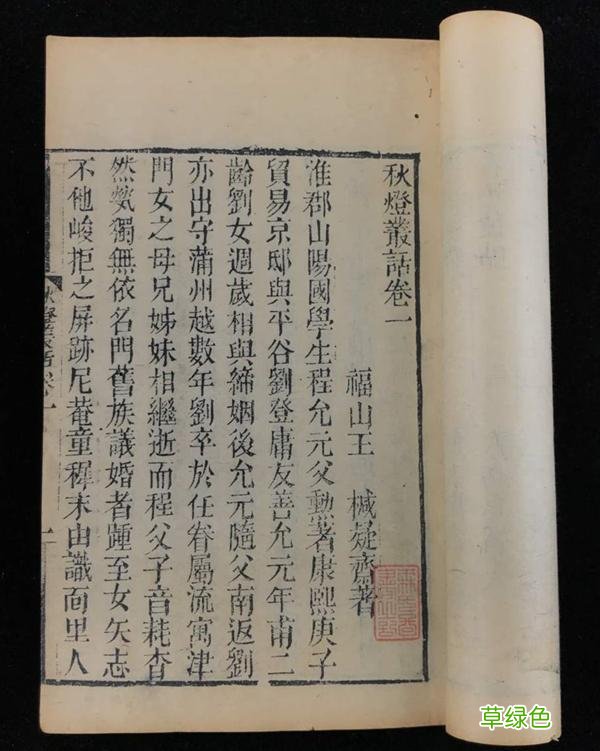 秋燈叢話卷一
福山王　椷凝齋著
淮郡山陽國學生程允元父勲著康熙庚子
貿易京邸與平谷劉登庸友善允元年甫二
齡劉女週歲相與締姻後允元隨父南返劉
亦出守蒲州越數年劉卒於任眷屬流寓津
門女之母兄姊妹相繼逝而程父子音耗杳
然煢獨無依名門舊族議婚者踵至女矢志
不他峻拒之屏跡尼菴童穉末由識面里人
草绿色